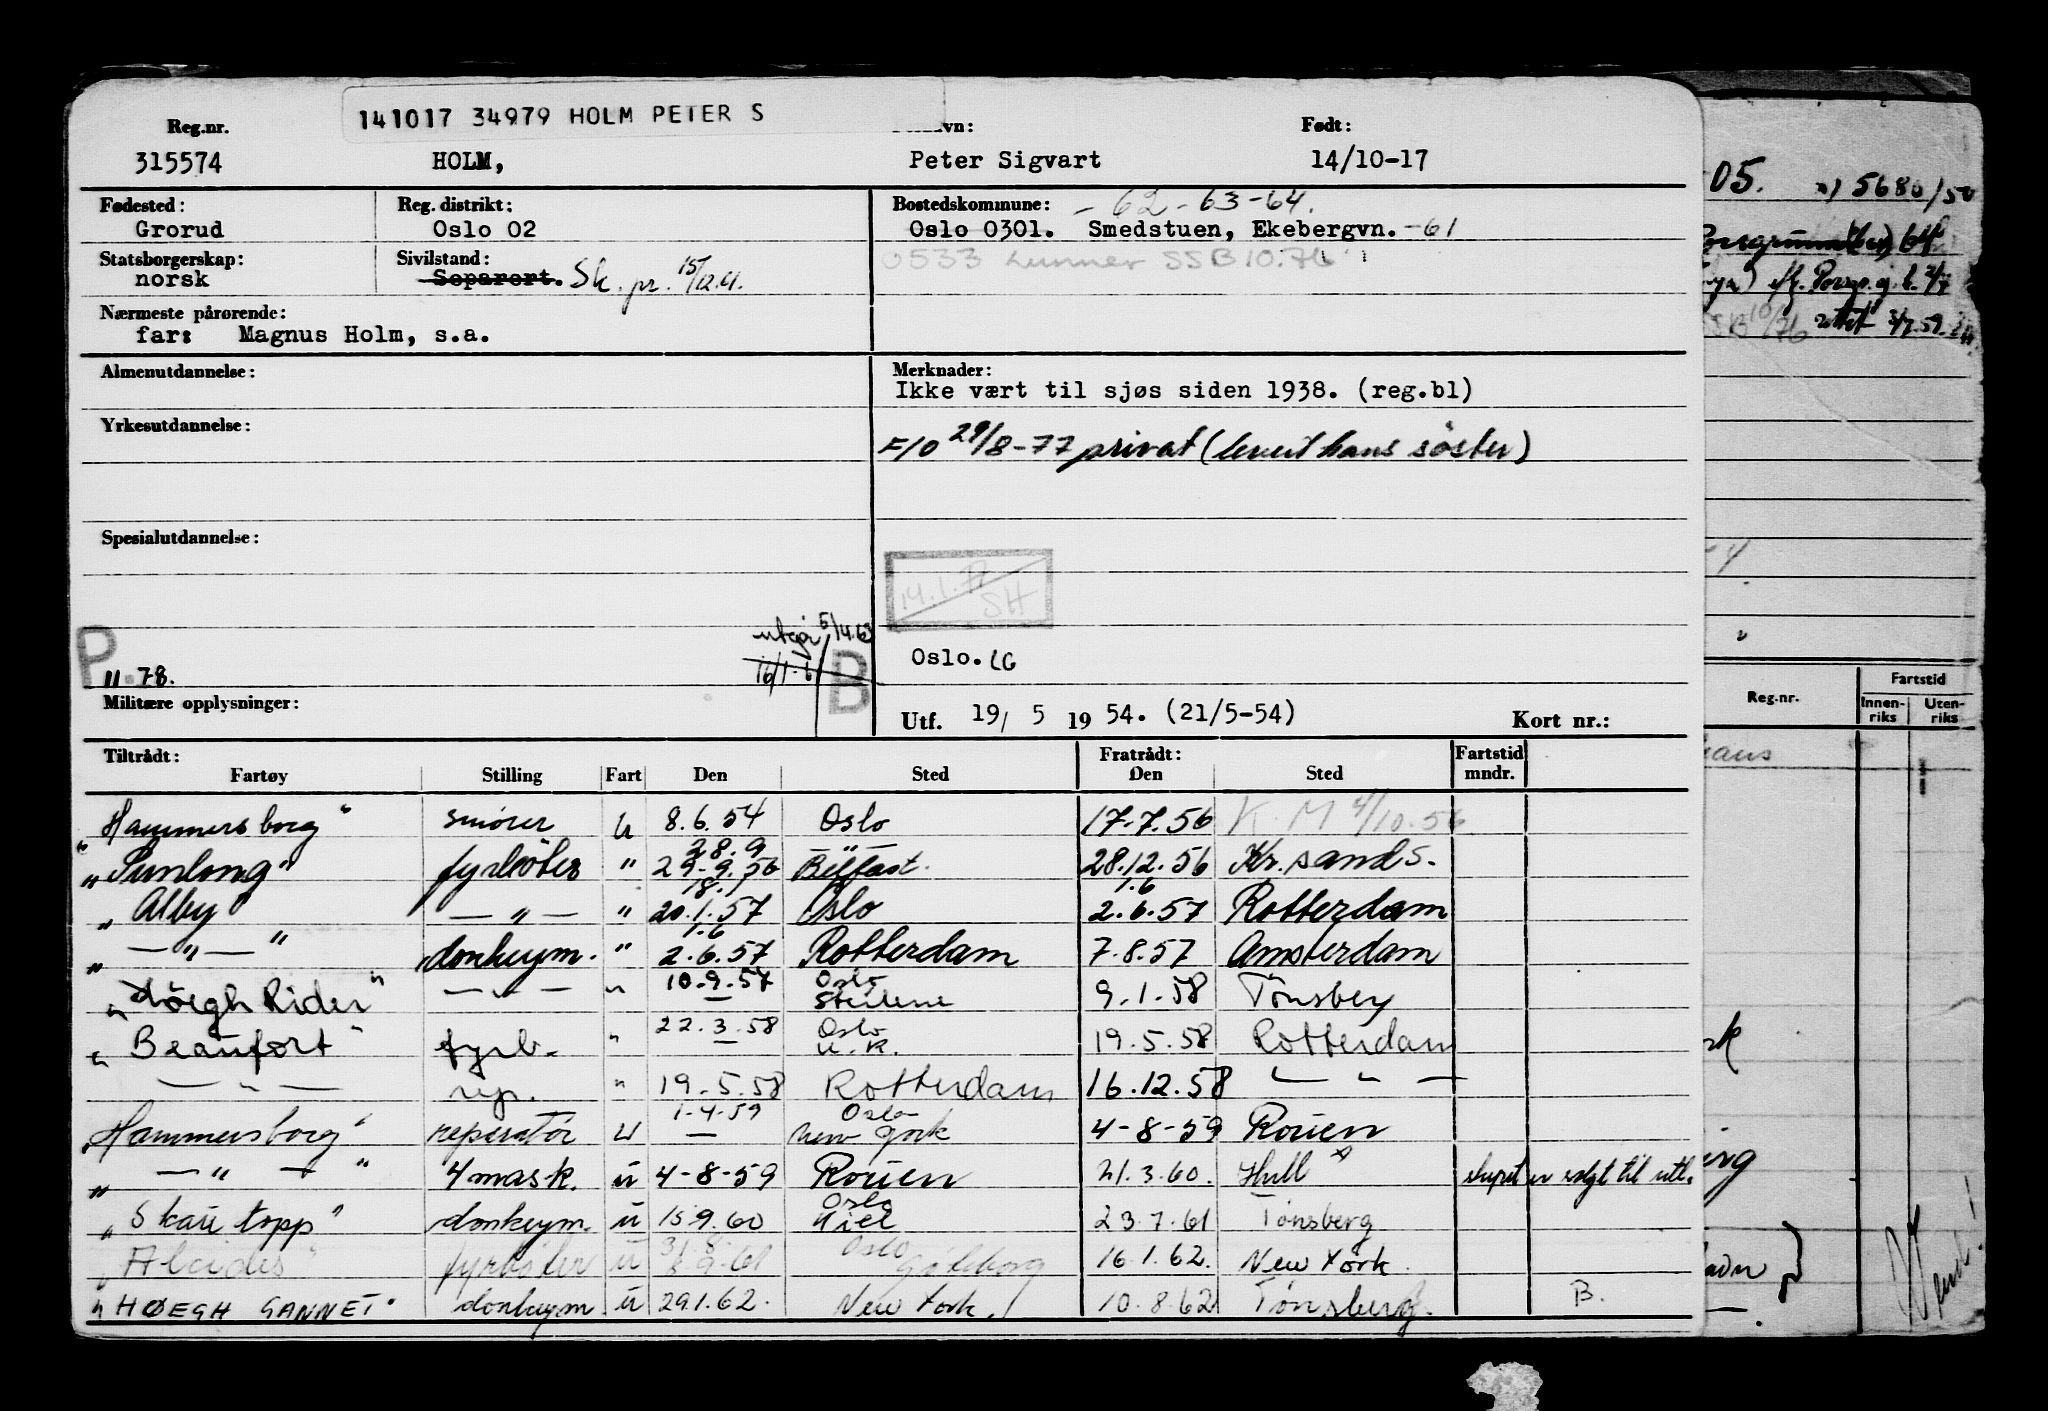 141017 34979 HOLM PETER S
Reg.nr. Født:
315574 HOLM, Peter Sigvart 14/10-17
Fødested: Reg. distrikt: Bostedskommune: - 62 - 63-64.
Grorud Oslo 02 Oslo 0301. Smedstuen, Ekebergvn. -61
Statsborgerskap: Sivilstand: 0533 Lunner SSB 10.76
norsk Separert. Sk. pr. 15/12.61.
Nærmeste pårørende:
far: Magnus Holm, s.a.
Almenutdannelse: Merknader:
Ikke vært til sjøs siden 1938. (reg.bl)
Yrkesutdannelse:
F/O 29/8-77 privat (levert hans søster)
Spesialutdannelse:
14.1.77
SH
utgår 5/4.63
P. B
11.78. 16/1-61 Oslo. LG
Militære opplysninger:
Utf. 19/ 5 19 54. (21/5-54) Kort nr.:
Tiltrådt: Fratrådt: Fartstid
Fartøy Stilling Fart Den Sted Den Sted mndr.
"Hammersborg" smører u 8.6.54 Oslo 17.7.56 K.M 4/10.56
28.9 — " —
"Sunlong" fyrbøter " 29.9.56 Belfast. 28.12.56 Kr.sand S.
18.1 1.6
"Alby" — " — " 20.1.57 Oslo 2.6.57 Rotterdam
1.6
" — " — " donkeym. " 2.6.57 Rotterdam 7.8.57 Amsterdam
10.9.57 Oslo
"Höegh Rider" — " — " — Steilene 9.1.58 Tønsberg
22.3.58 Oslo
"Beaufort" fyrb. " — U.K. 19.5.58 Rotterdam
— " — rep. " 19.5.58 Rotterdam 16.12.58 — " —
1.4.59 Oslo
"Hammersborg" reperatør u — New York 4-8-59 Rouen
" — " — " 4 mask. u 4-8-59 Rouen 21.3.60. Hull skipet er solgt til utl.
Oslo
"Skautopp" donkeym. u 15.9.60 Kiel 23.7.61 Tønsberg
31.8. Oslo
"Alcides" fyrbøter u 9-61 Göteborg 16.1.62. New York.
"HØEGH GANNET" donkeym. u 29.1.62. New York. 10.8.62 Tønsberg. B.
05. 5680/50
10/76 rettet 3/7.59.
Fartstid
Reg.nr. Innen-riks Uten-riks